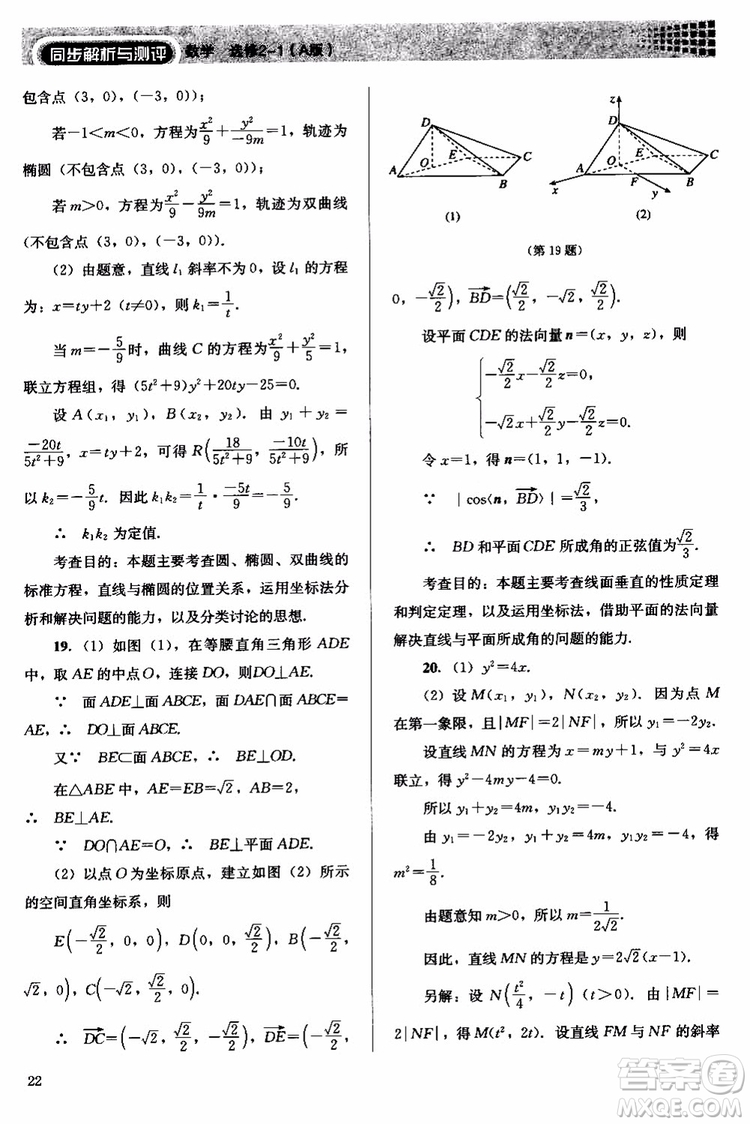 同步解析与测评 数学 选修2-1（A版）
包含点（3，0），（-3，0））；
若-1<m<0，方程为x²/9+y²/(-9m)=1，轨迹为
椭圆（不包含点（3，0），（-3，0））；
若 m>0，方程为x²/9-y²/(9m)=1，轨迹为双曲线
（不包含点（3，0），（-3，0））．
（2）由题意，直线 l₁ 斜率不为 0．设 l₁ 的方程
为：x=ty+2（t≠0），则 k₁=1/t．
当 m=-5/9时，曲线 C 的方程为x²/9+y²/5=1，
联立方程组，得（5t²+9）y²+20ty-25=0．
设 A（x₁，y₁），B（x₂，y₂）．由 y₁+y₂=
-20t/(5t²+9)，x=ty+2，可得 R(18/(5t²+9)，-10t/(5t²+9))，所
以 k₂=-5/9 t．因此 k₁k₂=1/t·-5t/9=-5/9．
∴ k₁k₂ 为定值．
考查目的：本题主要考查圆、椭圆、双曲线的
标准方程，直线与椭圆的位置关系，运用坐标法分
析和解决问题的能力，以及分类讨论的思想．
19．（1）如图（1），在等腰直角三角形 ADE
中，取 AE 的中点 O，连接 DO，则 DO⊥AE．
∵ 面 ADE⊥面 ABCE，面 DAE∩面 ABCE=
AE，∴ DO⊥面 ABCE．
又∵ BE⊂面 ABCE，∴ BE⊥OD．
在△ABE 中，AE=EB=√2，AB=2，
∴ BE⊥AE．
∵ DO∩AE=O，∴ BE⊥平面 ADE．
（2）以点 O 为坐标原点，建立如图（2）所示
的空间直角坐标系，则
E(-√2/2，0，0)，D(0，0，√2/2)，B(-√2/2，
√2，0)，C(-√2，√2/2，0)．
∴ DC=(-√2，√2/2，-√2/2)，DE=(-√2/2，
22
D
A
O
E
C
B
（1）
z
D
A
O
E
F
C
B
x
y
（2）
（第 19 题）
0，-√2/2)，BD=(√2/2，-√2，√2/2)．
设平面 CDE 的法向量 n=（x，y，z），则
{-√2/2 x-√2/2 z=0，
-√2x+√2/2 y-√2/2 z=0．
令 x=1，得 n=（1，1，-1）．
∵ |cos⟨n，BD⟩|=√2/3，
∴ BD 和平面 CDE 所成角的正弦值为√2/3．
考查目的：本题主要考查线面垂直的性质定理
和判定定理，以及运用坐标法，借助平面的法向量
解决直线与平面所成角的问题的能力．
20．（1）y²=4x．
（2）设 M（x₁，y₁），N（x₂，y₂），因为点 M
在第一象限，且|MF|=2|NF|，所以 y₁=-2y₂．
设直线 MN 的方程为 x=my+1，与 y²=4x
联立，得 y²-4my-4=0．
所以 y₁+y₂=4m，y₁y₂=-4．
由 y₁=-2y₂，y₁+y₂=4m，y₁y₂=-4，得
m²=1/8．
由题意知 m>0，所以 m=1/(2√2)．
因此，直线 MN 的方程是 y=2√2（x-1）．
另解：设 N(t²/4，-t)（t>0）．由|MF|=
2|NF|，得 M（t²，2t）．设直线 FM 与 NF 的斜率
答案圈